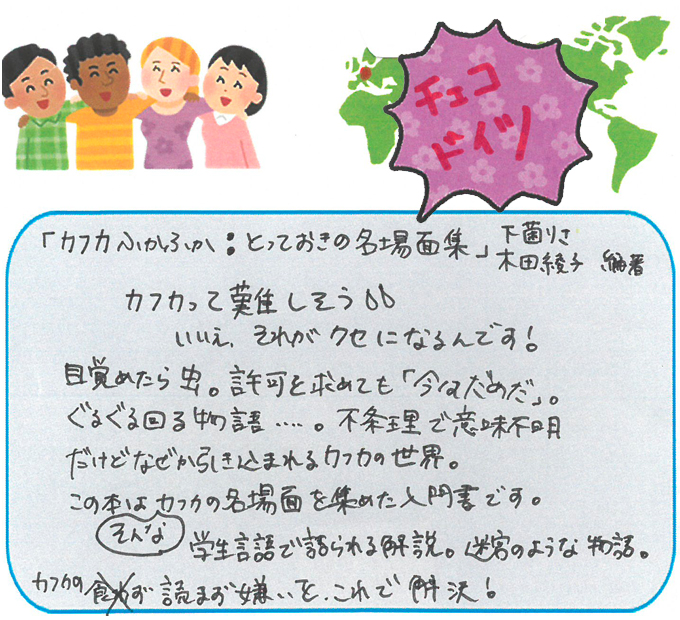 チェコ
ドイツ
「カフカふかふか：とっておきの名場面集」下薗りさ
木田綾子 編著
カフカって難しそう
いいえ、それがクセになるんです！
目覚めたら虫。許可を求めても「今はだめだ」。
ぐるぐる回る物語‥‥。不条理で意味不明
だけどなぜか引き込まれるカフカの世界。
この本はカフカの名場面を集めた入門書です。
そんな
学生言語で語られる解説。迷宮のような物語。
カフカの食わず読まず嫌いを、これで解決！